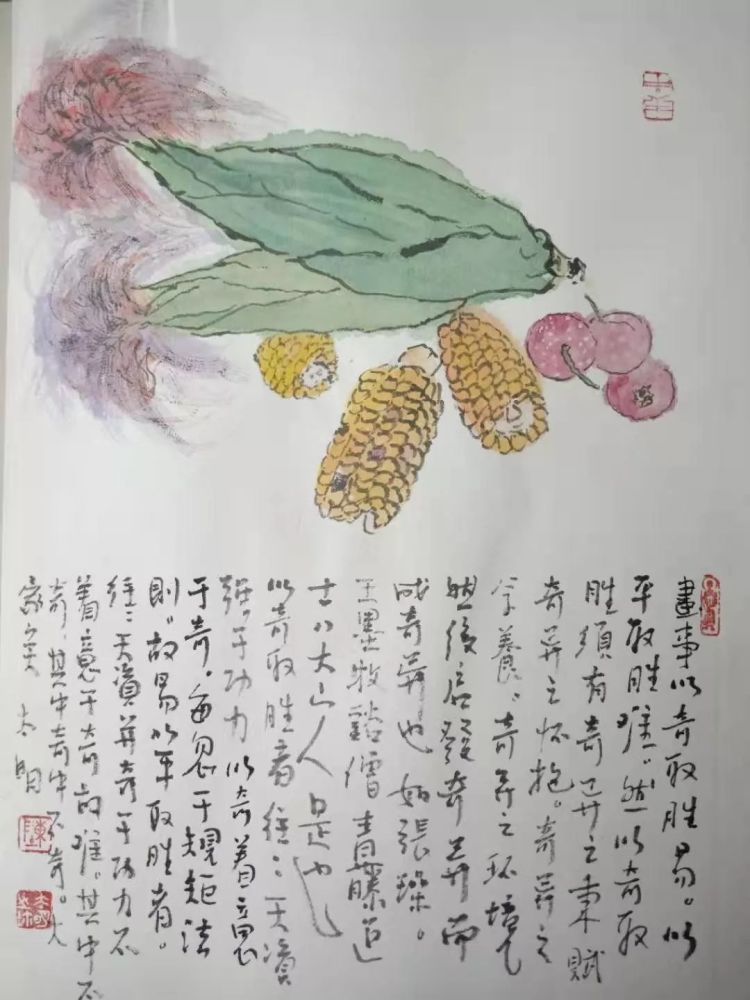 畫事以奇取胜易。以
平取胜难。然以奇取
胜須有奇异之秉賦
奇异之怀抱。奇异之
学養。奇异之环境
然後启發奇异而
成奇异也 如張璪。
王墨牧谿僧青藤道
士八大山人是也
以奇取胜者往:天資
强。于功力 以奇着意
于奇。每忽于規矩法
則。故易以平取胜者。
往:天資并奇于功力不
着意于奇故难。其中不
奇。其中奇中不奇。大
家矣 太明
陳